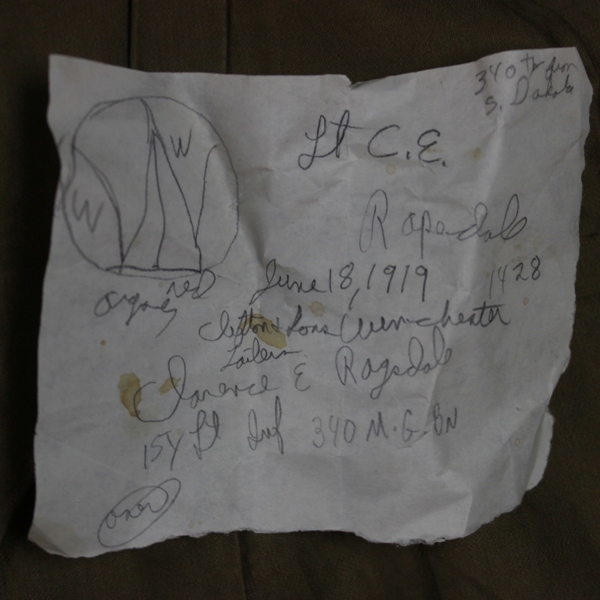 340th from
S. Dakota
Lt C.E.
Ragsdale
W
W
red
June 18, 1919 1428
Clifton & Sons Winchester
Tailors
Clarence E Ragsdale
1st Lt Inf 340 M.G. BN
over